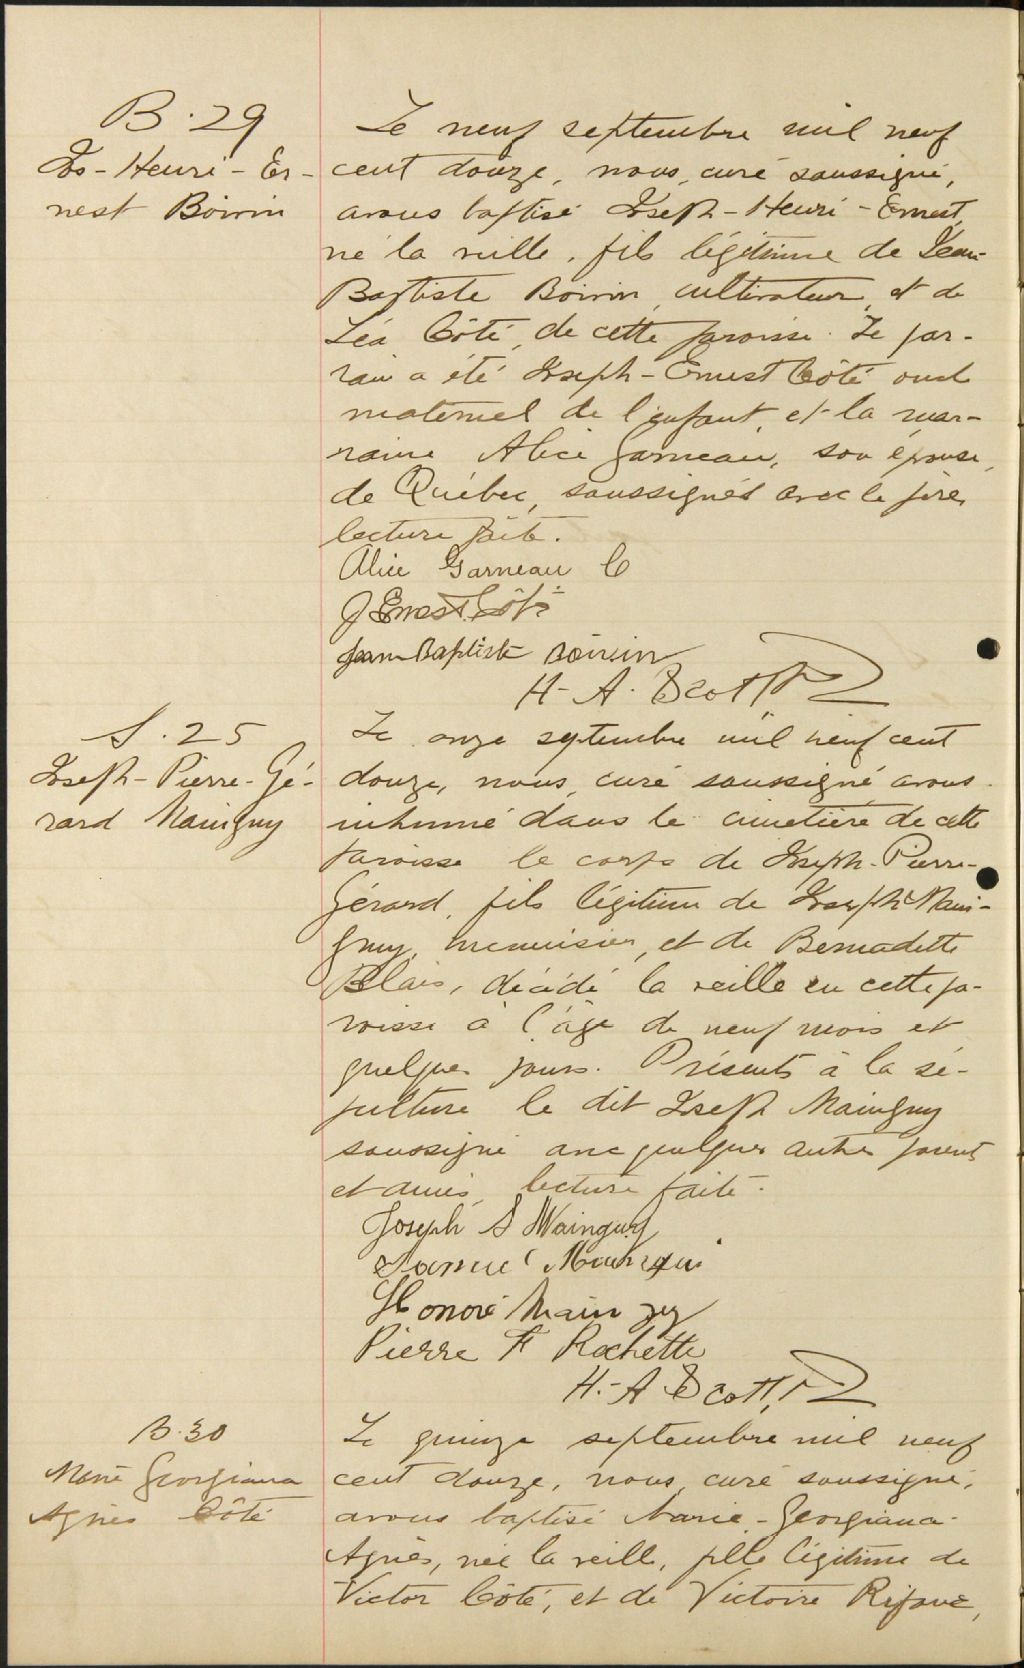 B. 29
Jos-Henri-Er-
nest Boivin
Le neuf septembre mil neuf
cent douze, nous, curé soussigné,
avons baptisé Joseph-Henri-Ernest,
né la veille, fils légitime de Jean-
Baptiste Boivin, cultivateur, et de
Léa Côté, de cette paroisse. Le par-
rain a été Joseph-Ernest Côté oncle
maternel de l'enfant, et la mar-
raine Alice Garneau, son épouse,
de Québec, soussignés avec le père,
lecture faite.
Alice Garneau C
J Ernest Côté
Jean-Baptiste Boivin
H.-A. Scott, Ptre
S. 25
Joseph-Pierre-Gé-
rard Mainguy
Le onze septembre mil neuf cent
douze, nous, curé soussigné avons
inhumé dans le cimetière de cette
paroisse le corps de Joseph-Pierre-
Gérard, fils légitime de Joseph Main-
guy, menuisier, et de Bernadette
Blais, décédé la veille en cette pa-
roisse à l'âge de neuf mois et
quelques jours. Présents à la sé-
pulture le dit Joseph Mainguy
soussigné avec quelques autres parents
et amis, lecture faite.
Joseph S Mainguy
Samuel Mainguy
Honoré Mainguy
Pierre F Rochette
H.-A Scott, Ptre
B. 30
Marie Georgiana
Agnès Côté
Le quinze septembre mil neuf
cent douze, nous, curé soussigné,
avons baptisé Marie-Georgiana-
Agnès, née la veille, fille légitime de
Victor Côté, et de Victoire